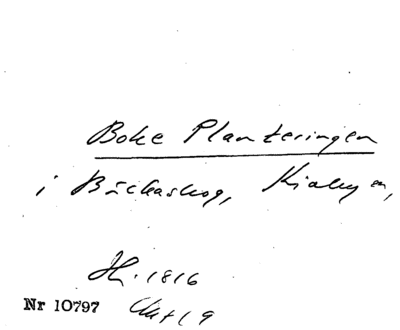 Boke Planteringen
i Bäckaskog, Kiaby sn,
H. 1816
Nr 10797